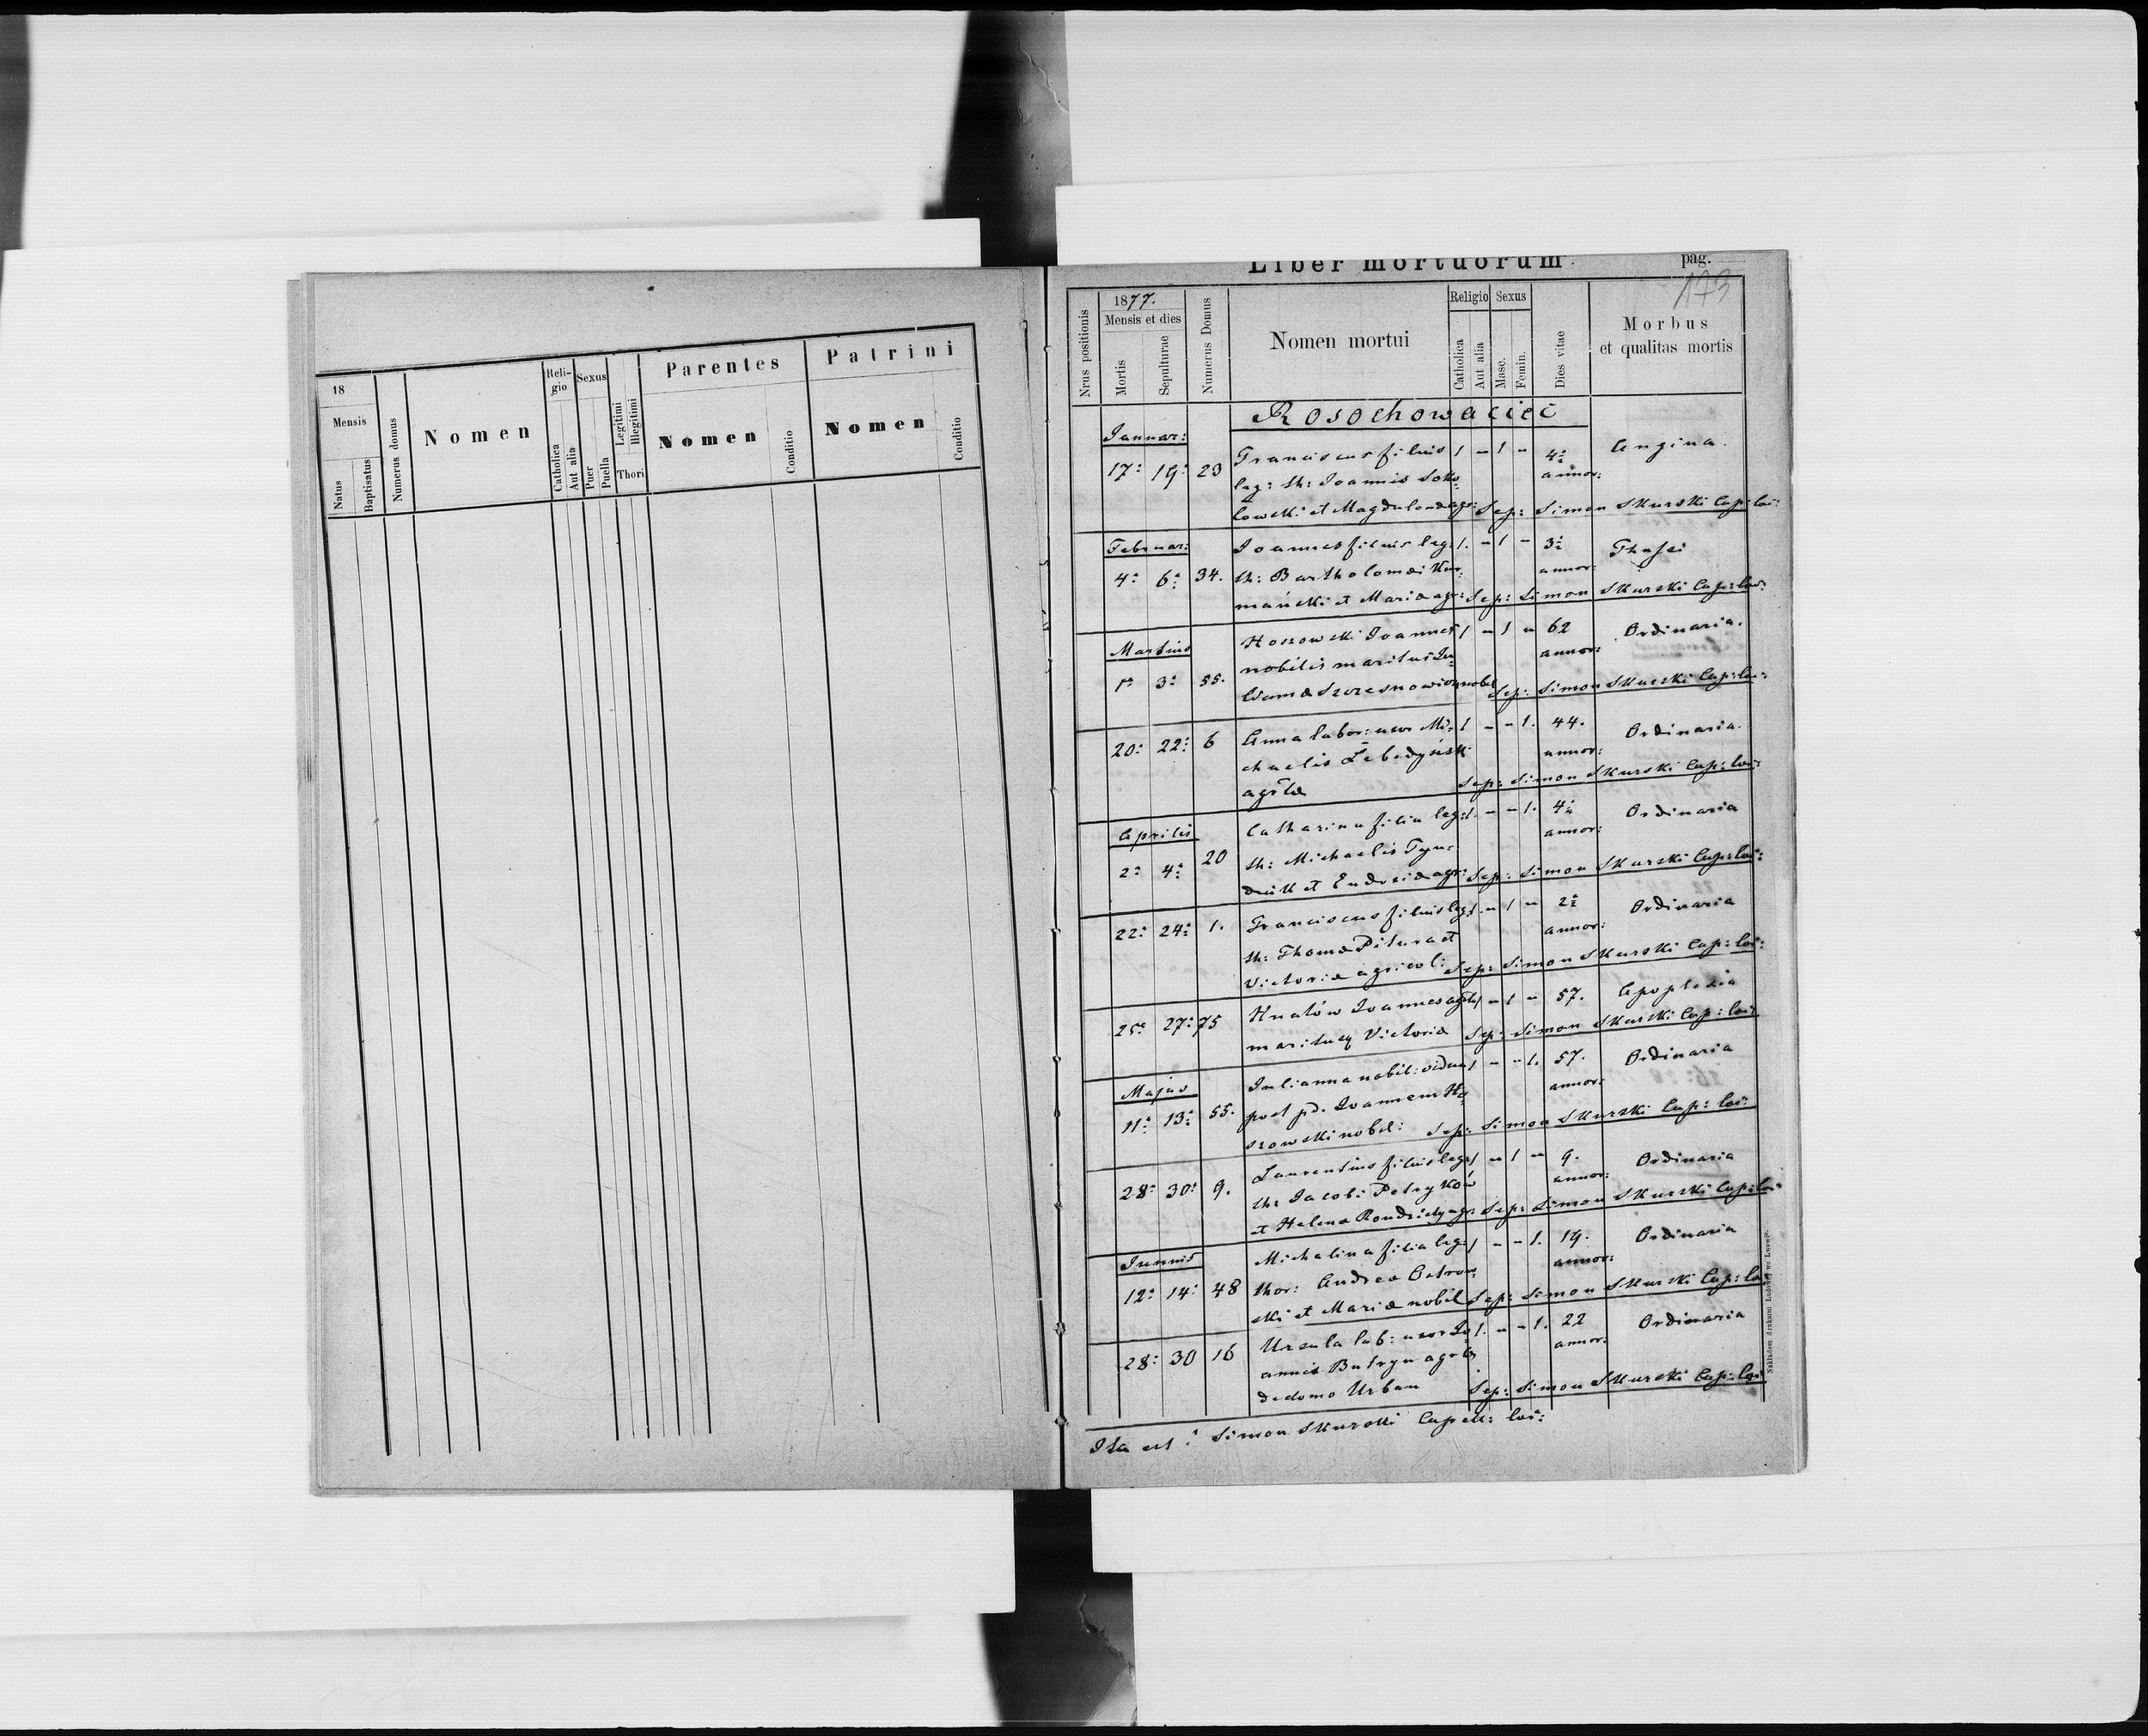 18
Mensis
Natus
Baptisatus
Numerus domus
Nomen
Reli-
gio
Catholica
Aut alia
Sexus
Puer
Puella
Legitimi
Illegitimi
Thori
Parentes
Nomen
Conditio
Patrini
Nomen
Conditio
Liber mortuorum
pag.
173
Nrus positionis
1877.
Mensis et dies
Mortis
Sepulturae
Numerus Domus
Nomen mortui
Religio
Catholica
Aut alia
Sexus
Masc.
Femin.
Dies vitae
Morbus
et qualitas mortis
Rosochowaciec
Januar:
17: 19: 23 Franciscus filius 1 - 1 - 4: Angina.
leg: th: Joannis Soko annor:
lowski et Magdalenae agr: Sep: Simon Skurski Cap: loc:
Februar: Joannes filius leg: 1. - 1 - 3:
4: 6: 34. th: Bartholomaei Kur annor:
mański et Maria agr: Sep: Simon Skurski Cap: loc:
Martius Hoszowski Joannes 1 - 1 - 62 Ordinaria.
nobilis maritus Ju annor:
1: 3: 55. Sep: Simon Skurski Cap: loc:
20: 22: 6 Anna labor: uxor Mi- 1 - - 1. 44. Ordinaria.
chaelis Lebedyńsk annor:
Sep: Simon Skurski Cap: loc:
Aprilis Catharina filia leg: 1. - - 1. 4: Ordinaria
2: 4: 20 th: Michaelis annor:
agr: Sep: Simon Skurski Cap: loc:
22: 24: 1. Franciscus filius leg: 1. - 1 - 2: Ordinaria
th: Thomae Pitura et annor:
Victoria agricol: Sep: Simon Skurski Cap: loc:
25: 27: 75 Hnatów Joannes 1 - 1 - 57. Apoplexia
maritus Victoria Sep: Simon Skurski Cap: loc:
Majus Julianna nobil: vidua 1 - - 1. 57. Ordinaria
11: 13: 55. post pd. Joannem Ho annor:
szowski nobil: Sep: Simon Skurski Cap: loc:
28: 30: 9. Laurentius filius leg: 1 - 1 - 9. Ordinaria
th: Jacobi Petryków annor:
et Helena agr: Sep: Simon Skurski Cap: loc:
Junius Michalina filia leg: 1 - - 1. 19. Ordinaria
12: 14: 48 thor: Andrea Ostrow annor:
ski et Maria nobil Sep: Simon Skurski Cap: loc:
28: 30 16 Ursula lab: uxor Jo 1. - - 1. 22 Ordinaria
annis Butryn annor:
de domo Urban Sep: Simon Skurski Cap: loc:
Ita est: Simon Skurski Capell: loc:
Nakładem drukarni Ludowej we Lwowie.